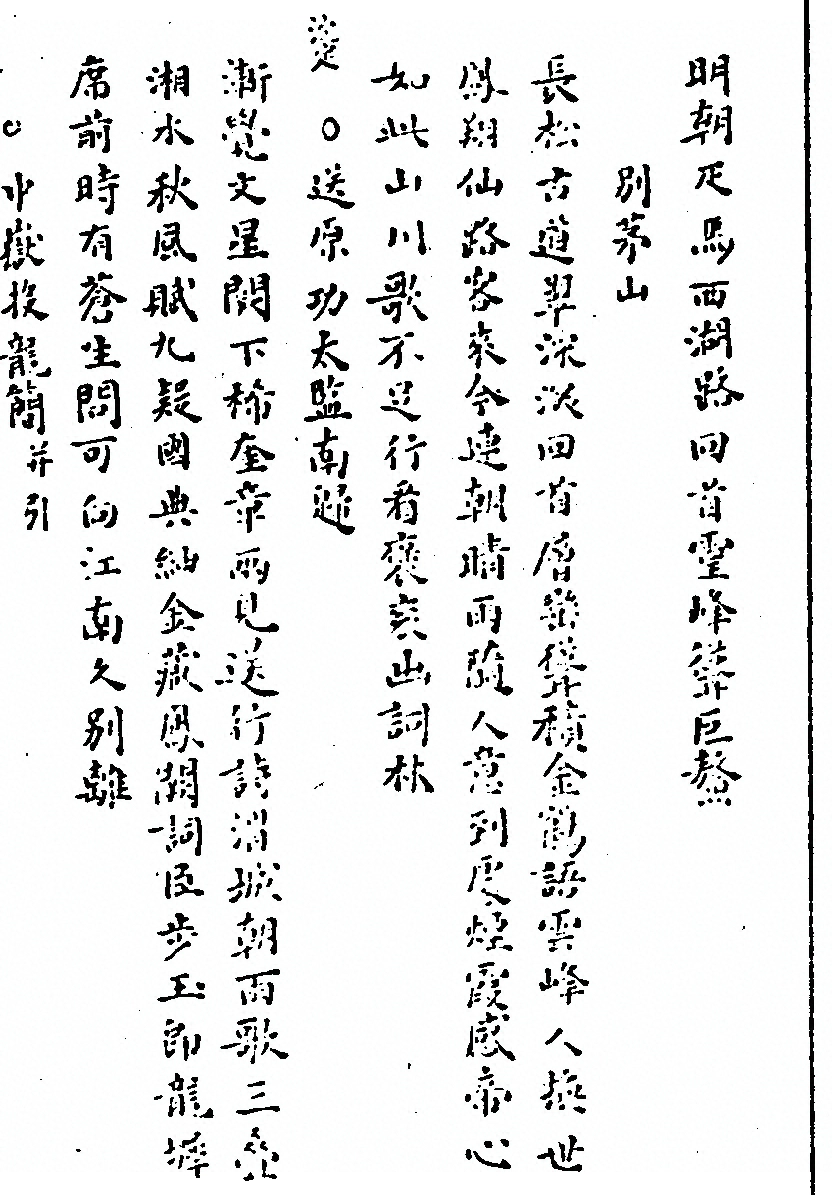 明朝疋馬西湖路回首靈峰聳巨鰲
別茅山
長松古道翠深沉回首層巒聳積金鶴語雲峰人換世
鳳翔仙路客來今連朝晴雨隨人意到處煙霞感帝心
如此山川歌不足行看褒美出詞林
送原功太監南歸
漸覺文星闕下稀奎章兩見送行詩渭城朝雨歌三疊
湘水秋風賦九疑國典紬金藏鳳閣詞臣步玉即龍墀
席前時有蒼生問可向江南久別離
中嶽投龍簡并引